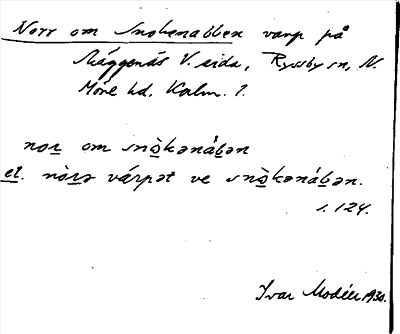 Norr om Snokenabben varp på
Skäggenäs V. sida, Ryssby sn, N.
Möre hd, Kalm. l.
nor om snò̱kənáb̲ən
el. nòrə várpət ve snò̱kənáb̲ən.
s. 124.
Ivar Modéer 1930.